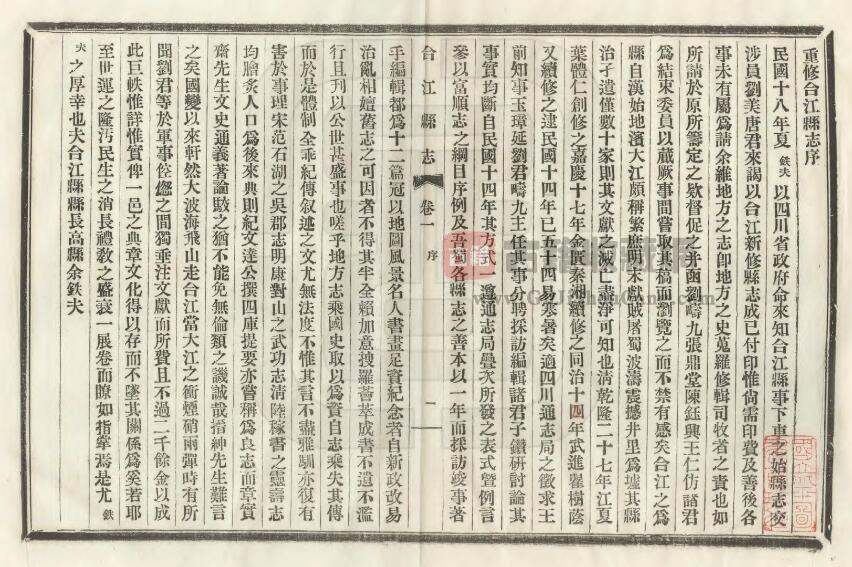 重修合江縣志序
民國十八年夏鉄夫以四川省政府命來知合江縣事下車之始縣志交
涉員劉美唐君來謁以合江新修縣志成已付印惟尙需印費及善後各
事未有屬爲請余維地方之志卽地方之史蒐羅修輯司牧者之責也如
所請於原所籌定之欵督促之并函劉疇九張鼎堂陳鈺興王仁仿諸君
爲結束委員以蕆厥事間嘗取其稿而瀏覽之而不禁有感矣合江之爲
縣自漢始地濱大江頗稱繁庶明末獻賊屠蜀波濤震撼井里爲墟其縣
治孑遺僅數十家則其文獻之滅亡盡淨可知也淸乾隆二十七年江夏
葉體仁創修之嘉慶十七年金匱秦湘續修之同治十四年武進瞿樹蔭
又續修之逮民國十四年已五十四易寒暑矣適四川通志局之徵求王
前知事玉璋延劉君疇九主任其事分聘採訪編輯諸君子鑽硏討論其
事實均斷自民國十四年其方式一遵通志局疊次所發之表式曁例言
參以富順志之綱目序例及吾蜀各縣志之善本以一年而採訪竣事著
合江縣志
卷一
序
一
手編輯都爲十二篇冠以地圖風景名人書畫足資紀念者自新政改易
治亂相嬗舊志之可因者不得其半全賴加意搜羅薈萃成書不遺不濫
行且刊以公世甚盛事也嗟乎地方志乘國史取以爲資自志乘失其傳
而於是體制全乖紀傳叙述之文尤無法度不惟其言不盡雅馴亦復有
害於事理宋范石湖之吳郡志明康對山之武功志淸陸稼書之靈壽志
均膾炙人口爲後來典則紀文達公撰四庫提要亦嘗稱爲良志而章實
齋先生文史通義著論駁之猶不能免無倫類之譏誠哉搢紳先生難言
之矣國變以來軒然大波海飛山走合江當大江之衝煙硝雨彈時有所
聞劉君等於軍事倥傯之間獨垂注文獻而所費且不過二千餘金以成
此巨帙惟詳惟實俾一邑之典章文化得以存而不墜其關係爲奚若耶
至世運之隆汚民生之消長禮敎之盛衰一展卷而瞭如指掌焉是尤鉄
夫之厚幸也夫合江縣縣長高縣余鉄夫